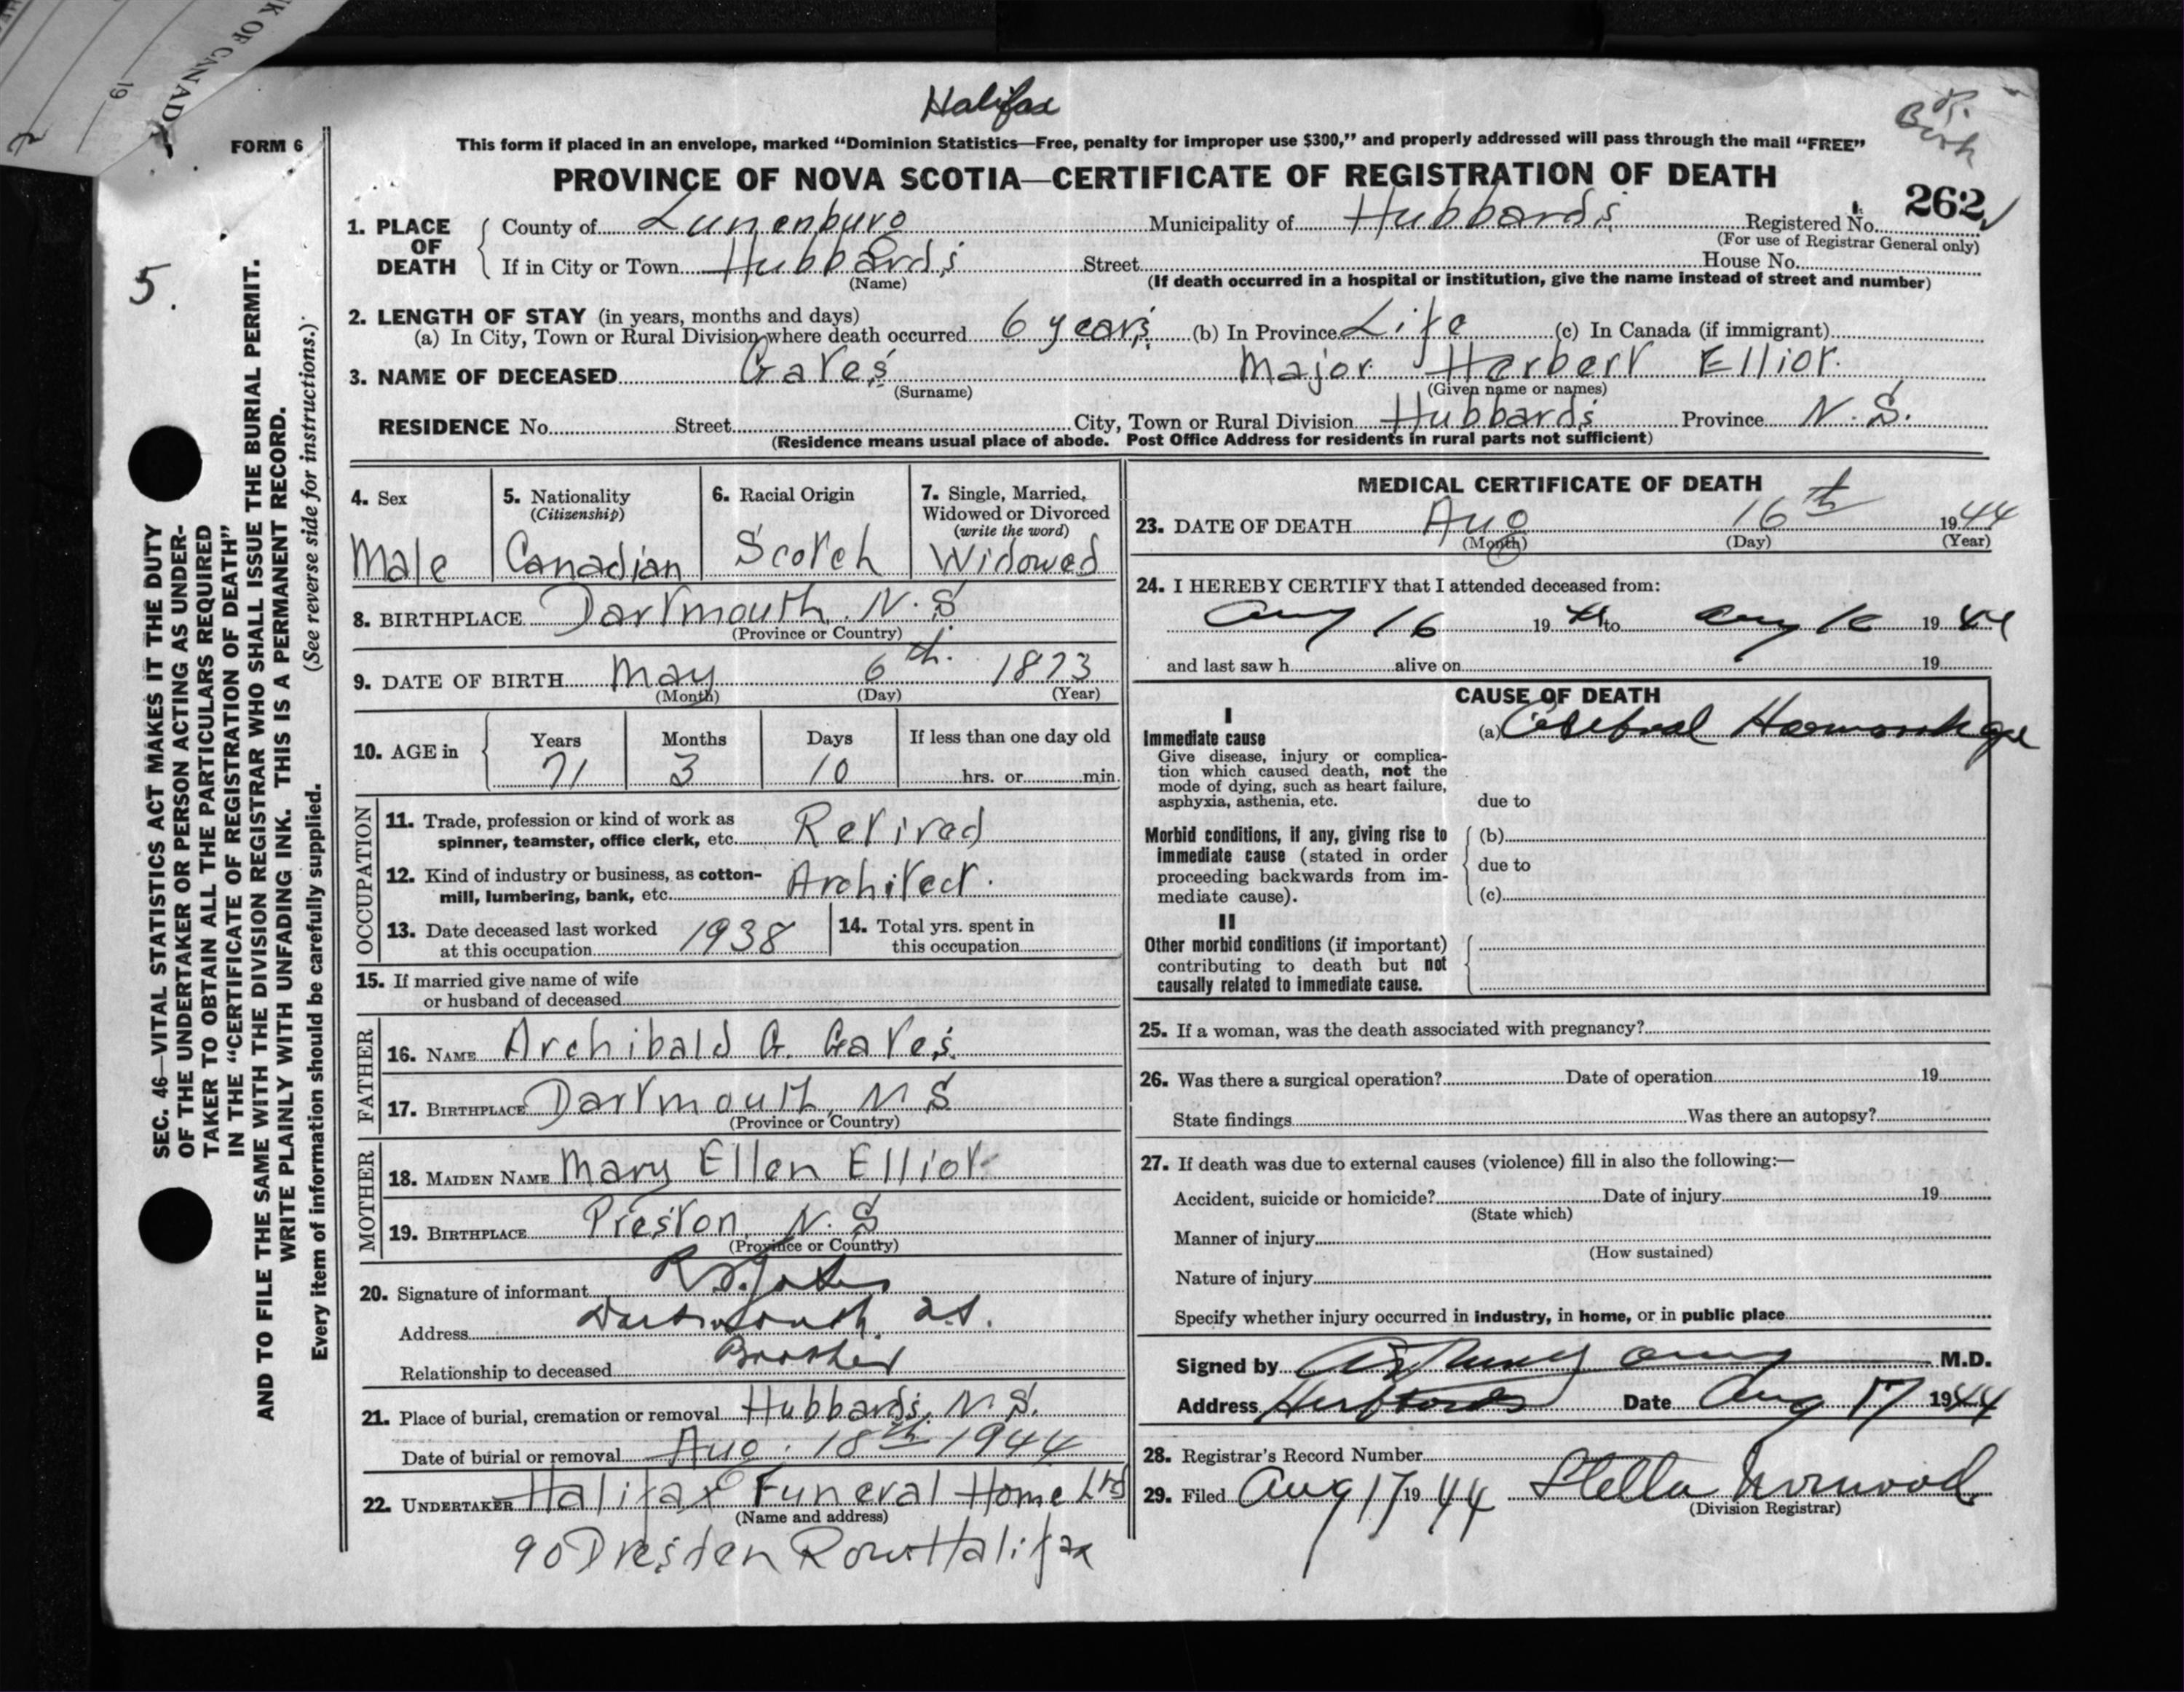 K OF CANADA
19
Halifax
FORM 6
This form if placed in an envelope, marked “Dominion Statistics—Free, penalty for improper use $300,” and properly addressed will pass through the mail “FREE”
PROVINCE OF NOVA SCOTIA—CERTIFICATE OF REGISTRATION OF DEATH
262
5.
SEC. 46—VITAL STATISTICS ACT MAKES IT THE DUTY
OF THE UNDERTAKER OR PERSON ACTING AS UNDER-
TAKER TO OBTAIN ALL THE PARTICULARS REQUIRED
IN THE “CERTIFICATE OF REGISTRATION OF DEATH”
AND TO FILE THE SAME WITH THE DIVISION REGISTRAR WHO SHALL ISSUE THE BURIAL PERMIT.
WRITE PLAINLY WITH UNFADING INK. THIS IS A PERMANENT RECORD.
Every item of information should be carefully supplied. (See reverse side for instructions.)
1. PLACE OF DEATH County of Lunenburg Municipality of Hubbards Registered No.
(For use of Registrar General only)
If in City or Town Hubbards Street House No.
(Name) (If death occurred in a hospital or institution, give the name instead of street and number)
2. LENGTH OF STAY (in years, months and days)
(a) In City, Town or Rural Division where death occurred 6 years (b) In Province Life (c) In Canada (if immigrant)
3. NAME OF DECEASED Gates Major Herbert Elliot.
(Surname) (Given name or names)
RESIDENCE No. Street City, Town or Rural Division Hubbards Province N.S.
(Residence means usual place of abode. Post Office Address for residents in rural parts not sufficient)
4. Sex
Male
5. Nationality
(Citizenship)
Canadian
6. Racial Origin
Scotch
7. Single, Married,
Widowed or Divorced
(write the word)
Widowed
8. BIRTHPLACE Dartmouth, N.S
(Province or Country)
9. DATE OF BIRTH May 6th. 1873
(Month) (Day) (Year)
10. AGE in Years Months Days If less than one day old
71 3 10 hrs. or min.
OCCUPATION
11. Trade, profession or kind of work as
spinner, teamster, office clerk, etc. Retired
12. Kind of industry or business, as cotton-
mill, lumbering, bank, etc. Architect.
13. Date deceased last worked
at this occupation 1938
14. Total yrs. spent in
this occupation
15. If married give name of wife
or husband of deceased
FATHER
16. NAME Archibald G. Gates
17. BIRTHPLACE Dartmouth, N S
(Province or Country)
MOTHER
18. MAIDEN NAME Mary Ellen Elliot
19. BIRTHPLACE Preston, N.S
(Province or Country)
20. Signature of informant
Address Dartmouth. N.S.
Relationship to deceased Brother
21. Place of burial, cremation or removal Hubbards, N.S.
Date of burial or removal Aug. 18th 1944
22. UNDERTAKER Halifax Funeral Home Ltd
(Name and address)
90 Dresden Row Halifax
MEDICAL CERTIFICATE OF DEATH
23. DATE OF DEATH Aug 16th 1944
(Month) (Day) (Year)
24. I HEREBY CERTIFY that I attended deceased from:
Aug 16 1944 to Aug 16 1944
and last saw h alive on 19
CAUSE OF DEATH
I
Immediate cause
Give disease, injury or complica-
tion which caused death, not the
mode of dying, such as heart failure,
asphyxia, asthenia, etc.
(a) Cerebral Haemorrhage
due to
Morbid conditions, if any, giving rise to
immediate cause (stated in order
proceeding backwards from im-
mediate cause).
(b)
due to
(c)
II
Other morbid conditions (if important)
contributing to death but not
causally related to immediate cause.
25. If a woman, was the death associated with pregnancy?
26. Was there a surgical operation? Date of operation 19
State findings Was there an autopsy?
27. If death was due to external causes (violence) fill in also the following:—
Accident, suicide or homicide? Date of injury 19
(State which)
Manner of injury
(How sustained)
Nature of injury
Specify whether injury occurred in industry, in home, or in public place
Signed by M.D.
Address Hubbards Date Aug 17 1944
28. Registrar's Record Number
29. Filed Aug 17 1944 Stella Norwood
(Division Registrar)